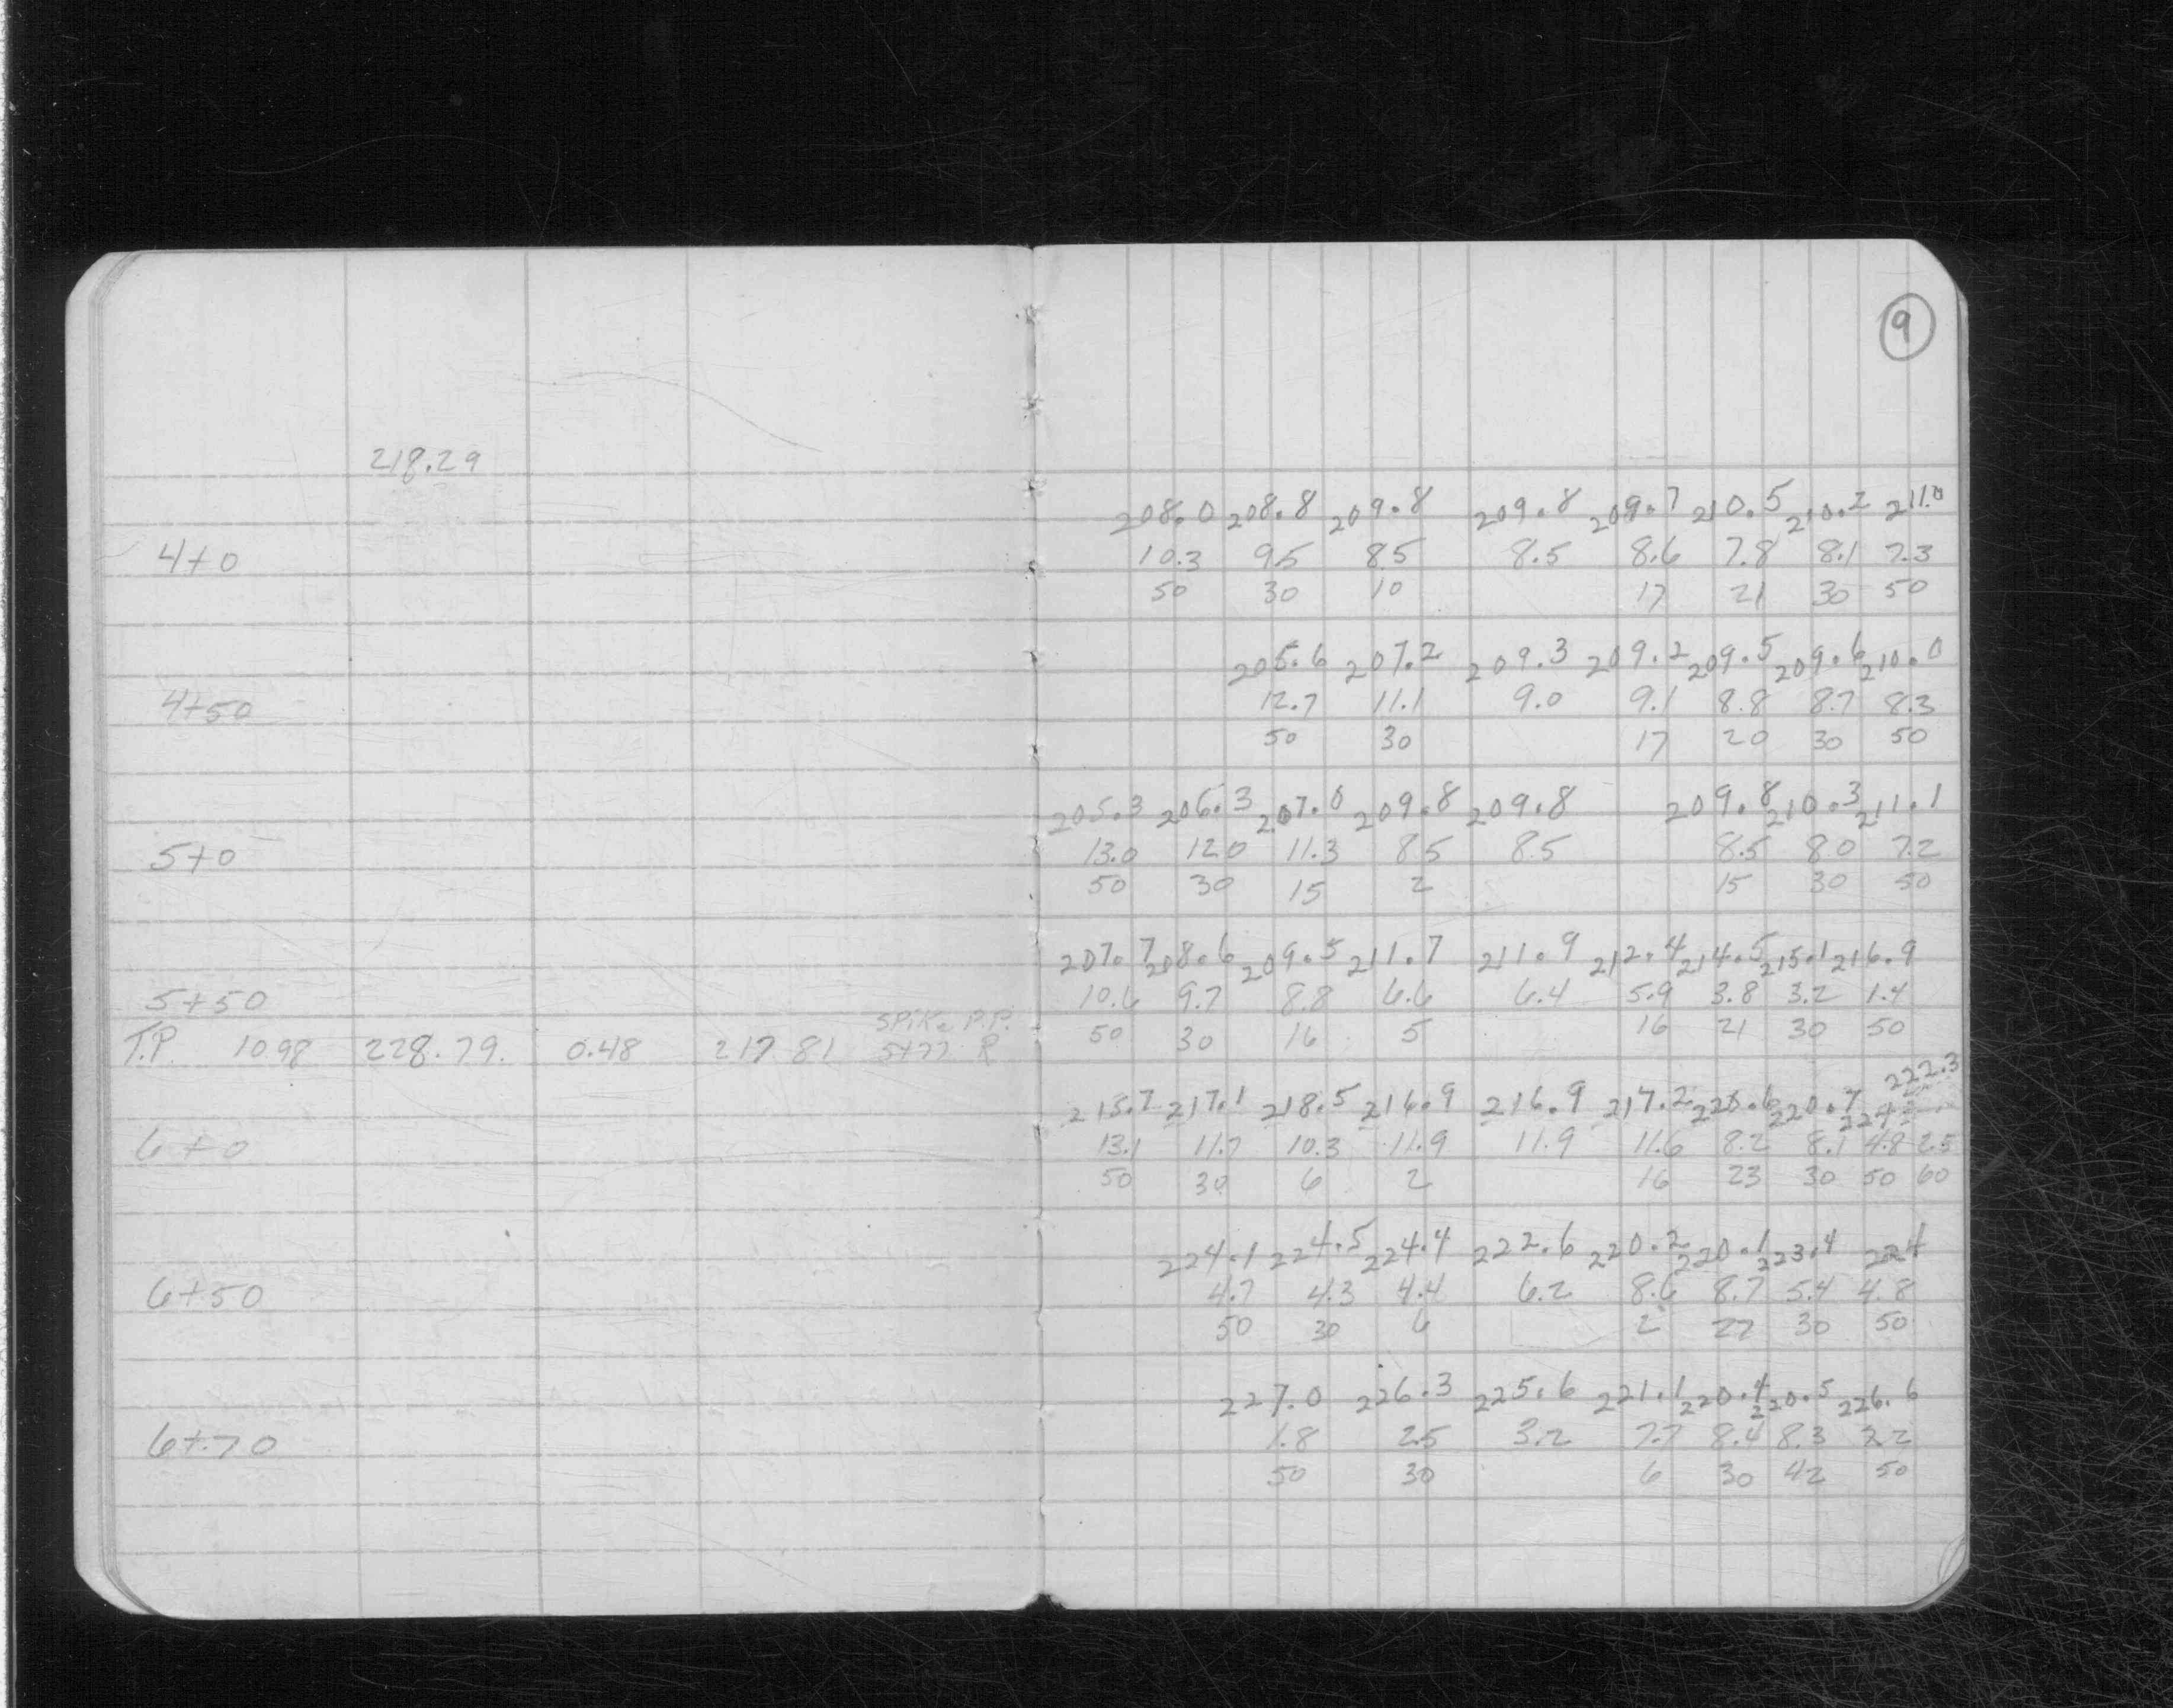 9
218.29
208.0 208.8 209.8 209.8 209.7 210.5 210.2 211.0
4+0 10.3 9.5 8.5 8.5 8.6 7.8 8.1 7.3
50 30 10 17 21 30 50
205.6 207.2 209.3 209.2 209.5 209.6 210.0
4+50 12.7 11.1 9.0 9.1 8.8 8.7 8.3
50 30 17 20 30 50
205.3 206.3 207.0 209.8 209.8 209.8 210.3 211.1
5+0 13.0 12.0 11.3 8.5 8.5 8.5 8.0 7.2
50 30 15 2 15 30 50
207.7 208.6 209.5 211.7 211.9 212.4 214.5 215.1 216.9
5+50 10.6 9.7 8.8 6.6 6.4 5.9 3.8 3.2 1.4
SPIKE P.P.
T.P. 10 98 228.79. 0.48 217 81 5+77 R 50 30 16 5 16 21 30 50
222.3
215.7 217.1 218.5 216.9 216.9 217.2 220.6 220.7 224
6+0 13.1 11.7 10.3 11.9 11.9 11.6 8.2 8.1 4.8 2.5
50 30 6 2 16 23 30 50 60
224.1 224.5 224.4 222.6 220.2 220.1 223.4 224
6+50 4.7 4.3 4.4 6.2 8.6 8.7 5.4 4.8
50 30 6 2 27 30 50
227.0 226.3 225.6 221.1 220.4 220.5 226.6
6+70 1.8 2.5 3.2 7.7 8.4 8.3 2.2
50 30 6 30 42 50